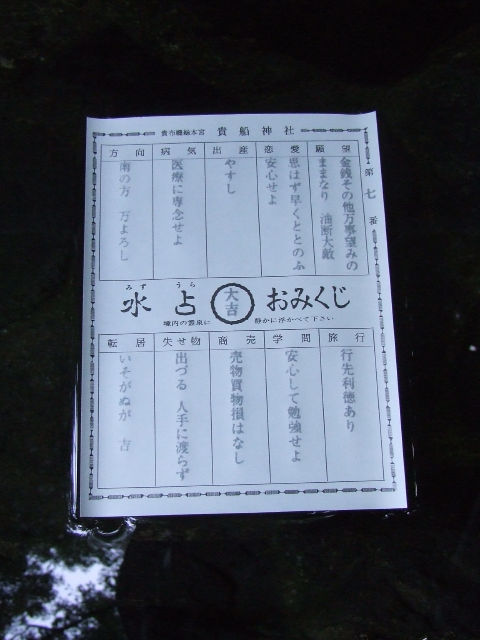 貴布禰総本宮 貴船神社
第七番
願望
金銭その他万事望みの
ままなり 油断大敵
恋愛
思はず早くととのふ
安心せよ
出産
やすし
病気
医療に専念せよ
方向
南の方 万よろし
みず うら
水占 大吉 おみくじ
境内の霊泉に 静かに浮かべて下さい
旅行
行先利徳あり
学問
安心して勉強せよ
商売
売物買物損はなし
失せ物
出づる 人手に渡らず
転居
いそがぬが 吉